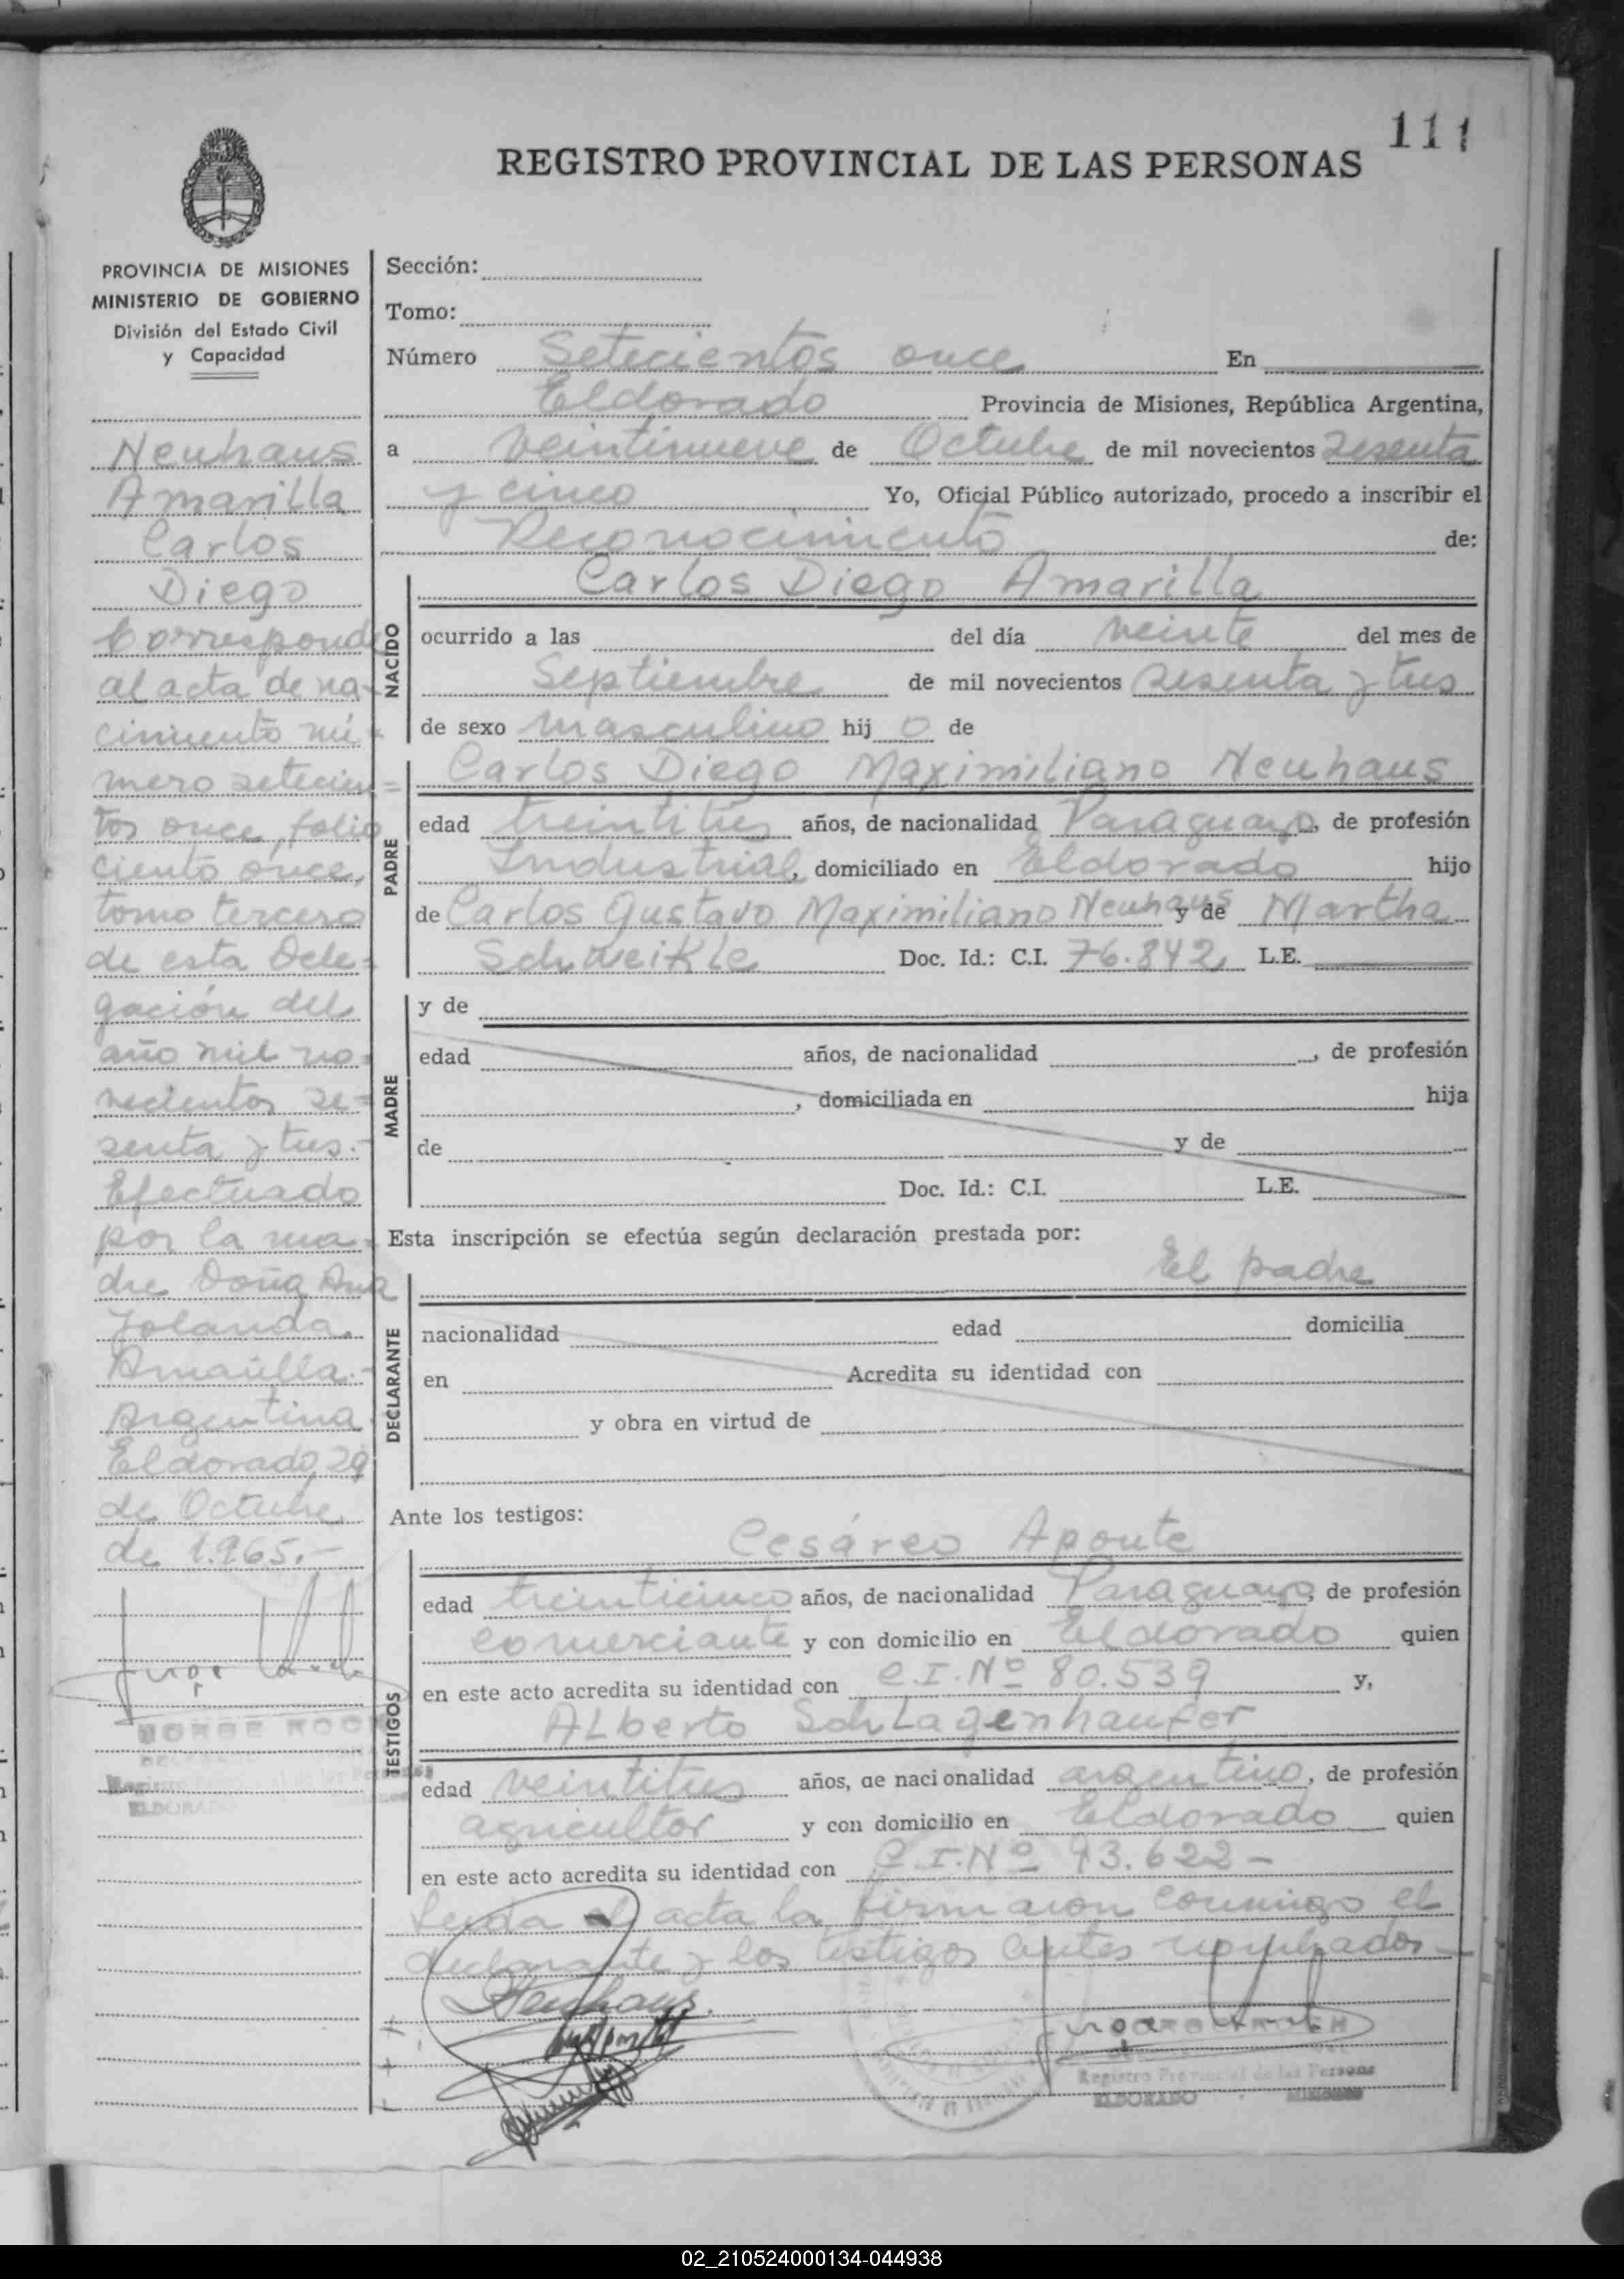 111
REGISTRO PROVINCIAL DE LAS PERSONAS
PROVINCIA DE MISIONES
MINISTERIO DE GOBIERNO
División del Estado Civil
y Capacidad
Neuhaus
Amarilla
Carlos
Diego
Corresponde
al acta de na-
cimiento nú=
mero setecien=
tos once, folio
ciento once,
tomo tercero
de esta Dele=
gación del
año mil no=
vecientos se=
senta y tres.-
Efectuado
por la ma=
dre Doña Ana
Yolanda
Amarilla.-
Argentina
Eldorado, 29
de Octubre
de 1.965.-
ELDORADO
Sección:
Tomo:
Número Setecientos once En
Eldorado Provincia de Misiones, República Argentina,
a veintinueve de Octubre de mil novecientos sesenta
y cinco Yo, Oficial Público autorizado, procedo a inscribir el
Reconocimiento de:
NACIDO
Carlos Diego Amarilla
ocurrido a las del día veinte del mes de
Septiembre de mil novecientos sesenta y tres
de sexo masculino hij o de
PADRE
Carlos Diego Maximiliano Neuhaus
edad treintitres años, de nacionalidad Paraguayo, de profesión
Industrial, domiciliado en Eldorado hijo
de Carlos Gustavo Maximiliano Neuhaus y de Martha
Schweikle Doc. Id.: C.I. 76.842 L.E.
MADRE
y de
edad años, de nacionalidad , de profesión
, domiciliada en hija
de y de
Doc. Id.: C.I. L.E.
Esta inscripción se efectúa según declaración prestada por:
El padre
DECLARANTE
nacionalidad edad domicilia
en Acredita su identidad con
y obra en virtud de
Ante los testigos:
TESTIGOS
Cesáreo Aponte
edad treinticinco años, de nacionalidad Paraguayo, de profesión
comerciante y con domicilio en Eldorado quien
en este acto acredita su identidad con C.I.Nº 80.539 y,
Alberto Schlagenhaufer
edad veintitres años, de nacionalidad argentino, de profesión
agricultor y con domicilio en Eldorado quien
en este acto acredita su identidad con C.I.Nº 93.622-
Leída el acta la firmaron conmigo el
declarante y los testigos antes nombrados
Neuhaus.
Registro Provincial de las Personas
ELDORADO - MISIONES
02_210524000134-044938